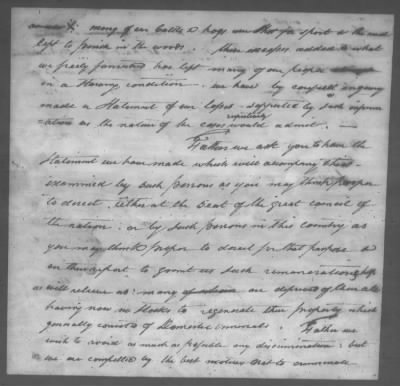 many of our cattle & hogs were shot for sport & the meat
left to perish in the woods. these excesses added to what
we freely furnished has left many of our people
in a starving condition. we have by careful enquiry
made a Statement of our losses supported by such inform
ation as the nature of the cases respectively would admit.
Father we ask you to have the
Statement we have made which will accompany this
examined by such persons as you may think proper
to direct, either at the seat of the great council of
the nation: or by such persons in this country as
you may think proper to direct for that purpose &
on their report to grant us such remuneration
as will relieve us: many are deprived of their all
having now no Stocks to regenerate their property which
generally consists of Domestic animals. Father we
wish to avoid as much as possible any discrimination: but
we are compelled by the best motives that to